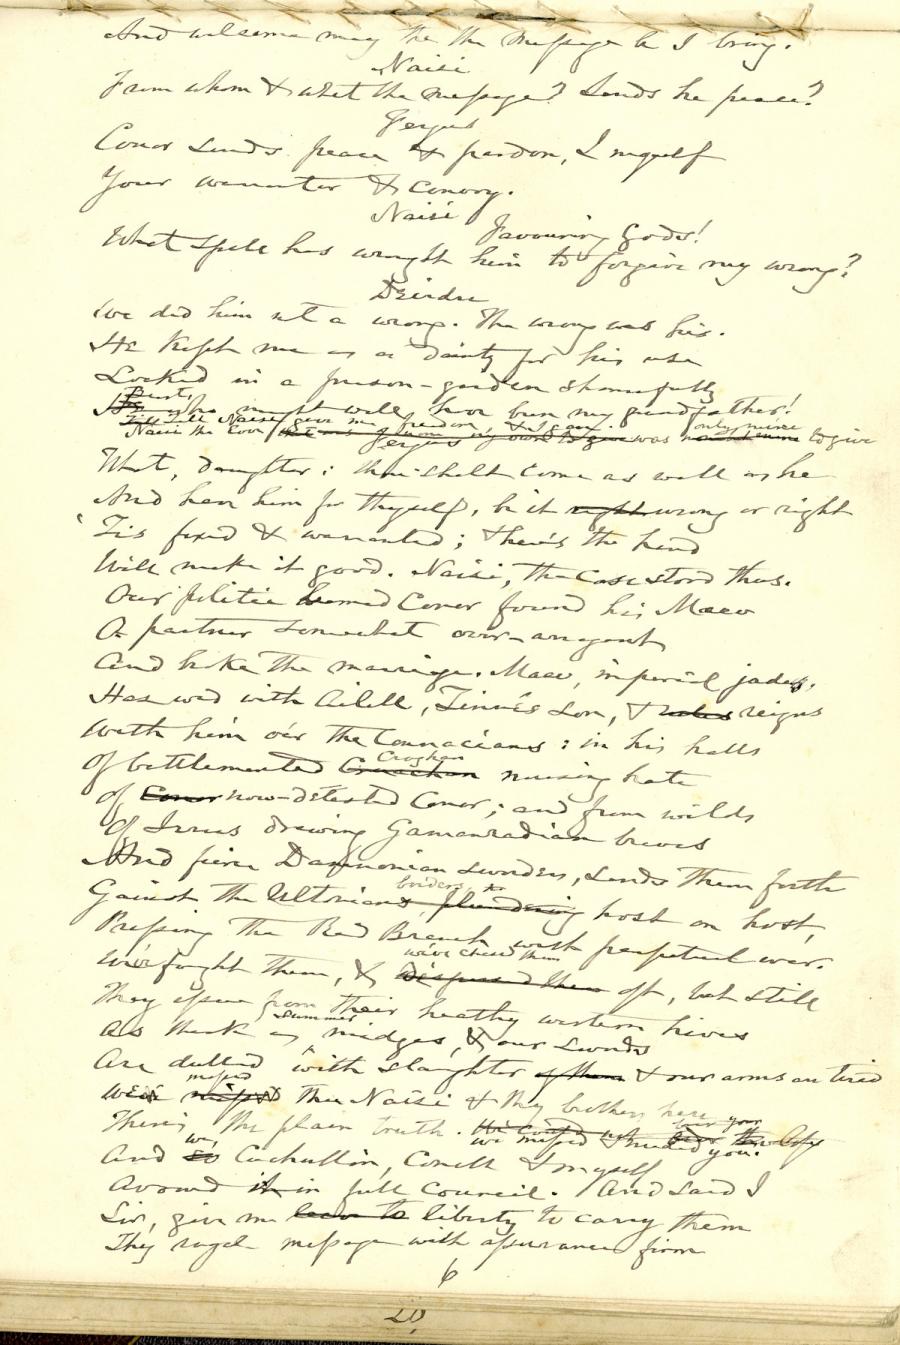 And welcome may the the message be I bring.
Naisi
From whom & what the message? Sends he peace?
Fergus
Conor sends peace & pardon, I myself
Your warranter & convoy.
Naisi
Favouring Gods!
What spell has wrought him to forgive my wrong?
Deirdre
We did him not a wrong. The wrong was his.
He kept me as a dainty for his use
Locked in a prison-garden shamefully
But,
who might well have been my grandfather!
Till Naisi gave me freedom, &
only mine
Naisi the love was to give
Fergus
What, daughter: thou shalt come as well as he
And hear him for thyself, be it right wrong or right
'Tis fixed & warranted; & here's the hand
Will make it good. Naisi, the case stood thus.
Our politic Conor found his Maev
A partner somewhat over-arrogant
And broke the marriage. Maev, imperial jade,
Has wed with Ailill, Tinné's son, & rules reigns
With him o'er the Connacians: in his halls
Croghan
Of battlemented Cruachan nursing hate
Of Conor now-detested Conor; and from wilds
Of Irrus drawing Gamanradian braves
And fierce Damnonian swordsers, sends them forth
borders,
Gainst the Ultonian plundering host on host,
Pressing the Red Branch with perpetual war.
we've chased them
We've fought them, & dispersed them oft, but still
They issue from their heathy western hives
summer
As thick as midges, & our swords
Are dulled with slaughter of them & our arms are tired
missed
We've missed thee Naisi & thy brothers here
There's the plain truth.
we missed & needed you.
we,
And so Cuchullin, Conall & myself
Avowed it in full council. And said I
Sir, give me leave to liberty to carry them
Thy royal message with assurance firm
6
20